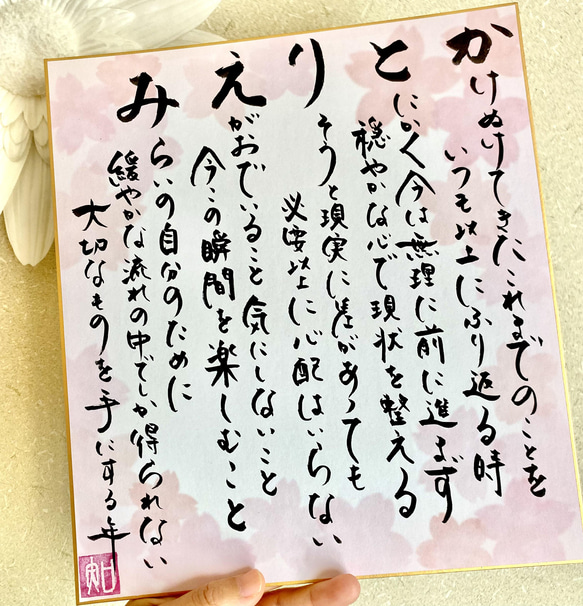 かけぬけてきたこれまでのことを
いつも以上にふり返る時
とにかく今は無理に前に進まず
穏やかな心で現状を整える
りそうと現実に差があっても
必要以上に心配はいらない
えがおでいること気にしないこと
今この瞬間を楽しむこと
みらいの自分のために
緩やかな流れの中でしか得られない
大切なものを手にする年